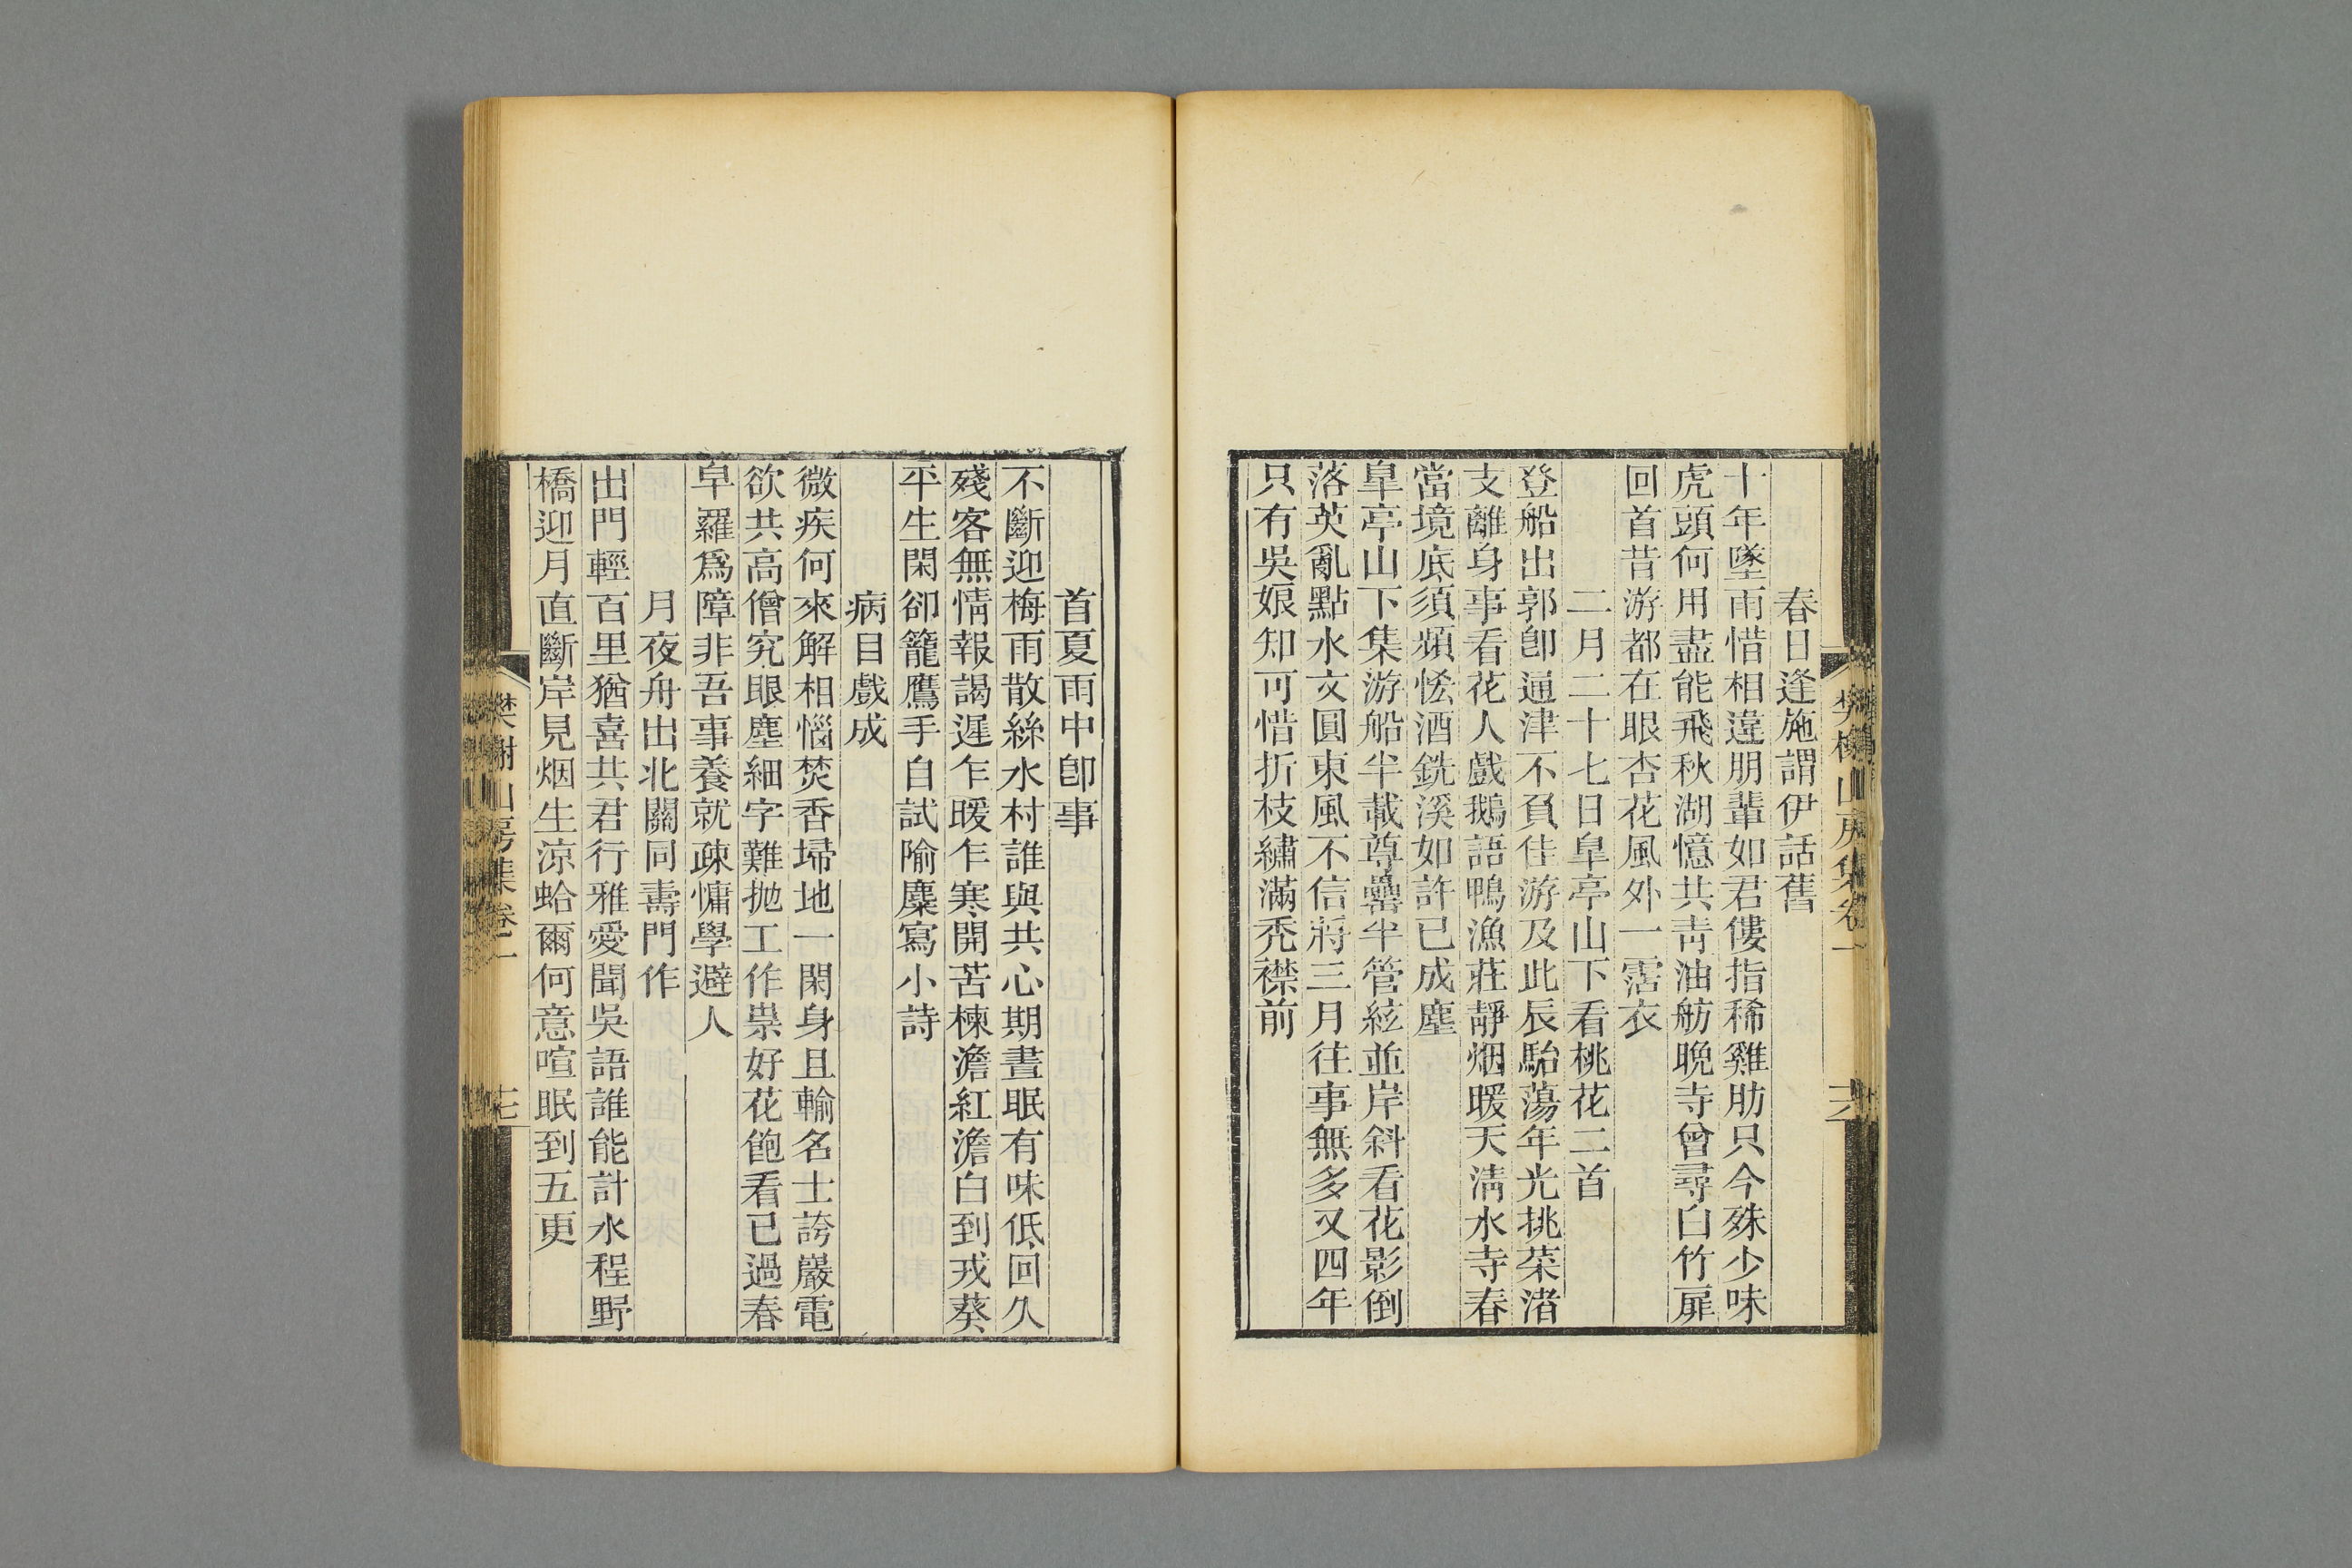 樊榭山房集卷一
春日逢施謂伊話舊
十年墜雨惜相違朋輩如君僂指稀雞肋只今殊少味
虎頭何用盡能飛秋湖憶共靑油舫晩寺曾尋白竹扉
回首昔游都在眼杏花風外一霑衣
二月二十七日臯亭山下看桃花二首
登船出郭卽通津不負佳游及此辰駘蕩年光挑菜渚
支離身事看花人戲鵝語鴨漁莊靜烟暖天淸水寺春
當境底須頻恡酒銑溪如許已成塵
臯亭山下集游船半載尊罍半管絃並岸斜看花影倒
落英亂點水文圓東風不信將三月往事無多又四年
只有吳娘知可惜折枝繡滿禿襟前
首夏雨中卽事
不斷迎梅雨散絲水村誰與共心期晝眠有味低回久
殘客無情報謁遲乍暖乍寒開苦楝澹紅澹白到戎葵
平生閑卻籠鷹手自試隃麋寫小詩
病目戲成
微疾何來解相惱焚香埽地一閑身且輸名士誇巖電
欲共高僧究眼塵細字難抛工作祟好花飽看已過春
皁羅爲障非吾事養就疎慵學避人
月夜舟出北關同壽門作
出門輕百里猶喜共君行雅愛聞吳語誰能計水程野
橋迎月直斷岸見烟生涼蛤爾何意喧眠到五更
樊榭山房集卷一
十七